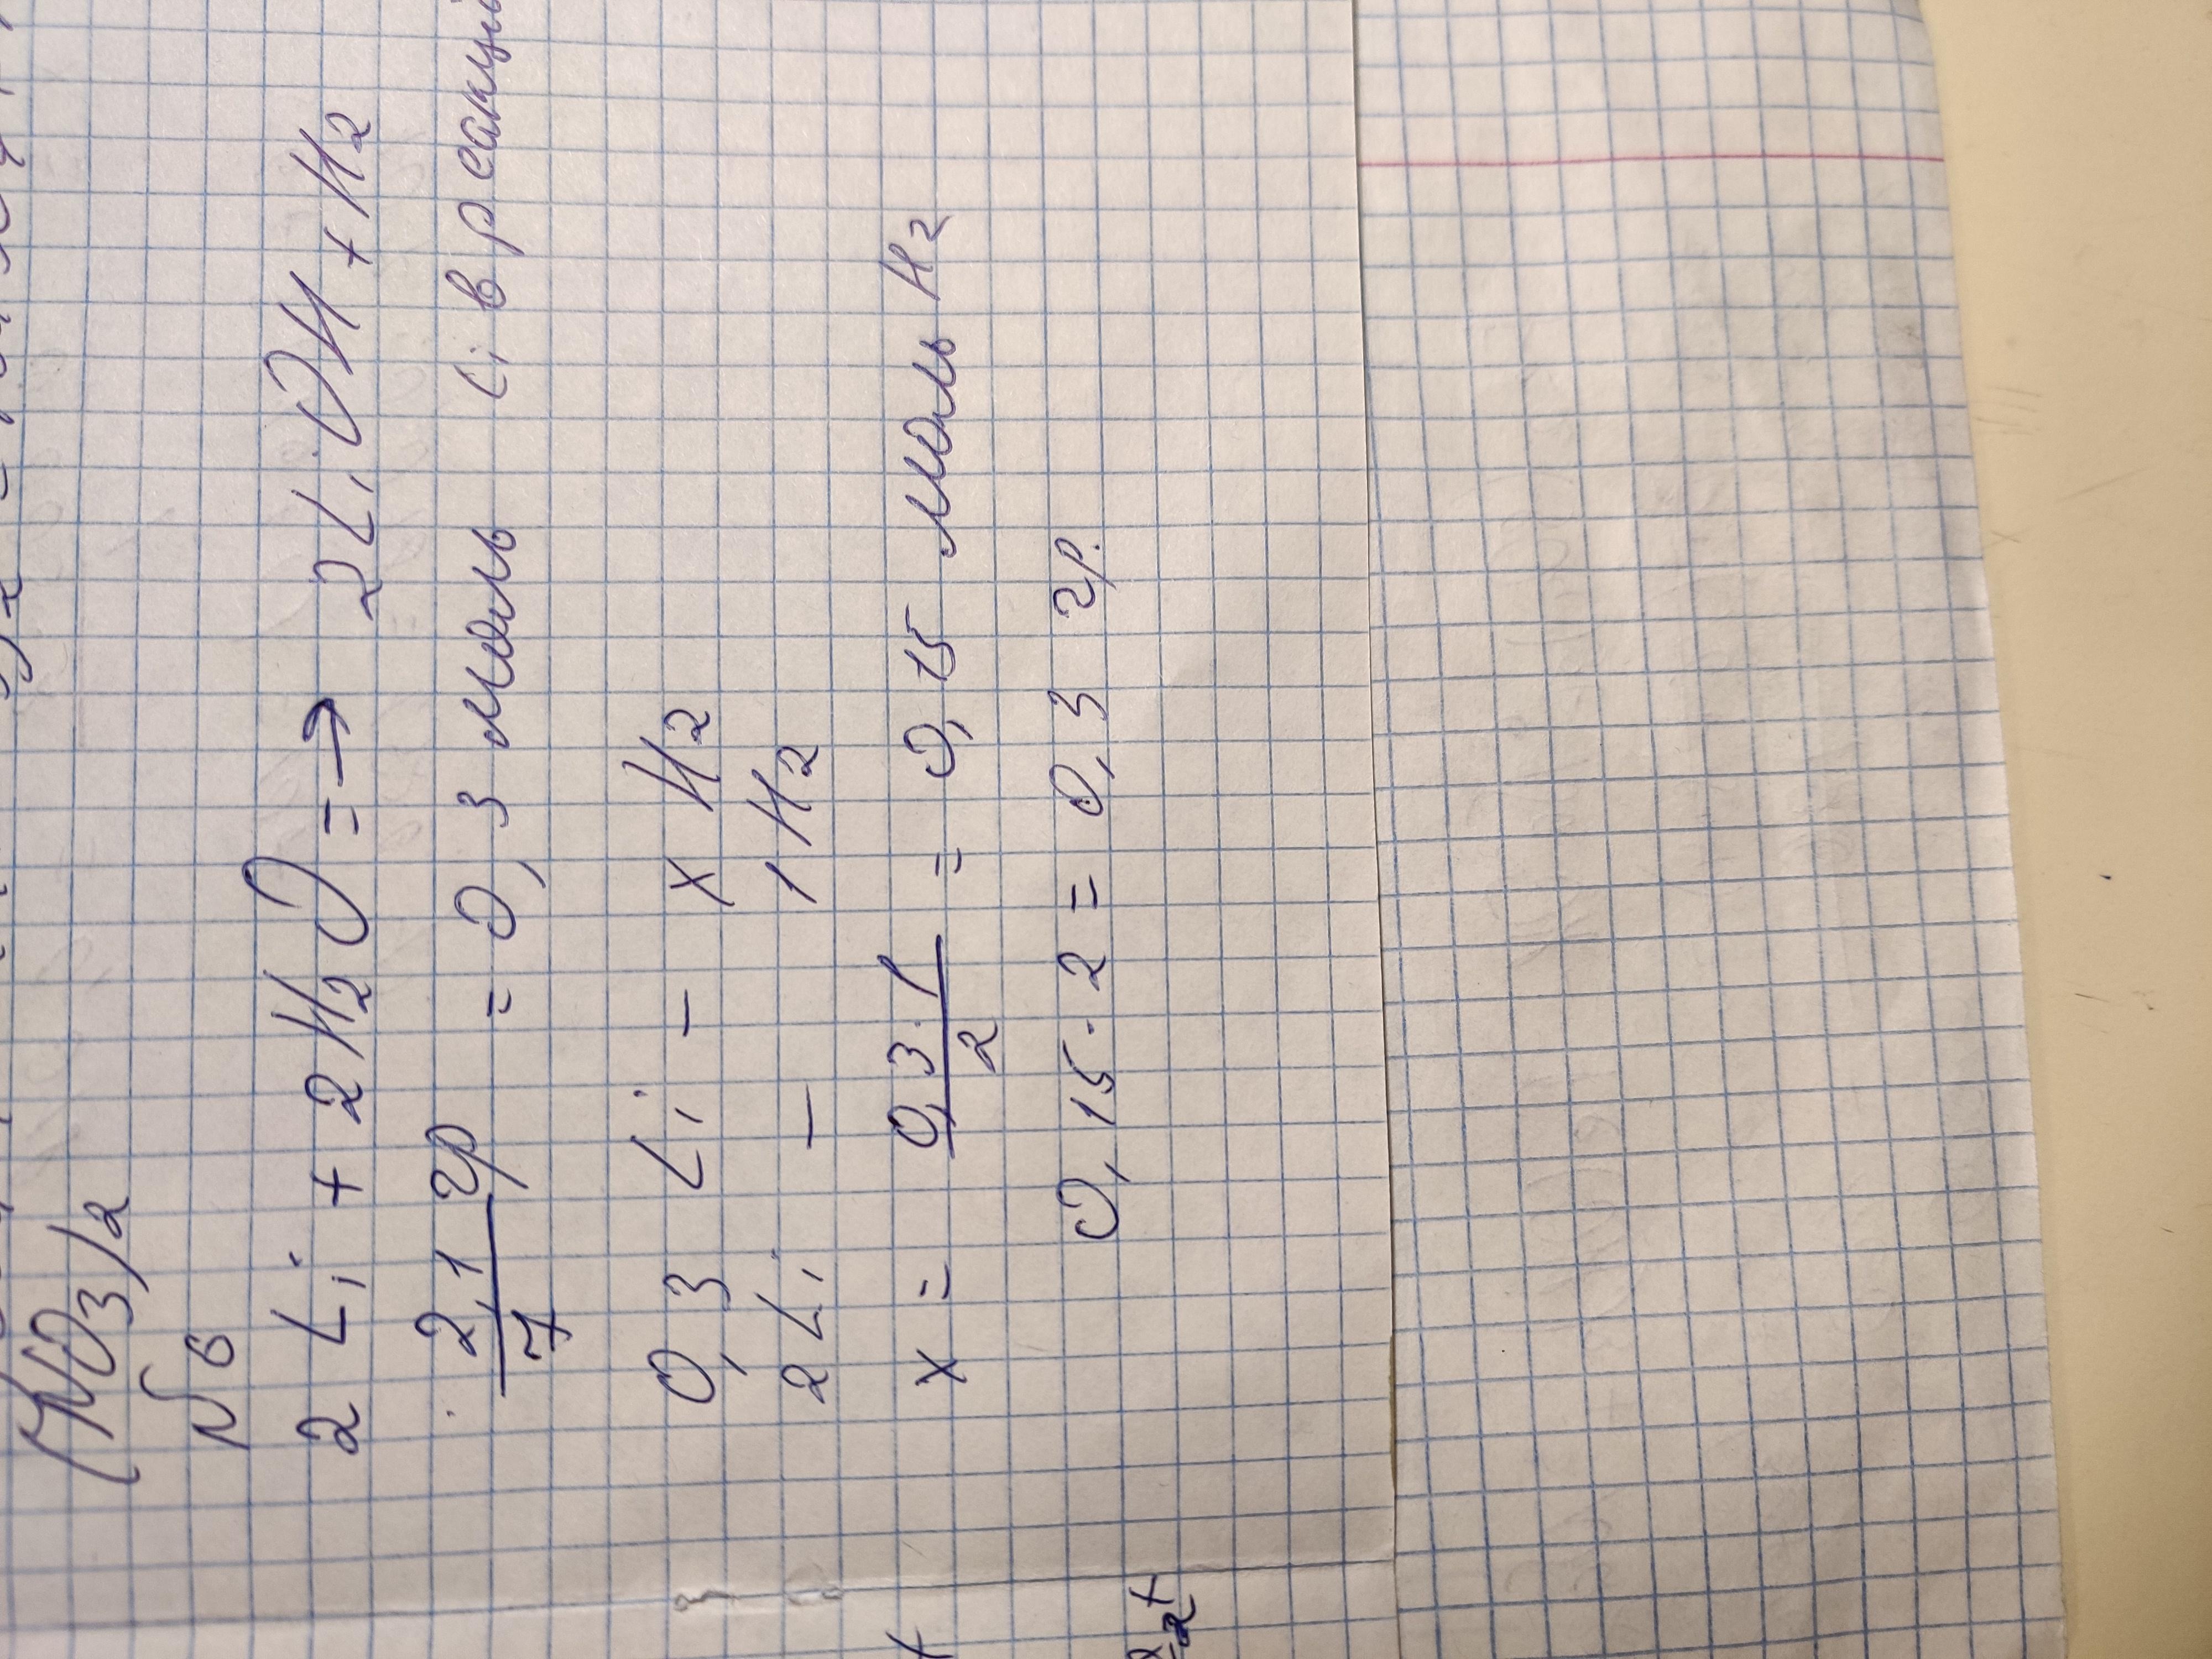 (NO3)2
N6
2 Li + 2H2O = → 2LiOH + H2
2,1 гр = 0,3 моль Li в реакци
7
0,3 Li - x H2
2 Li - 1 H2
x = 0,3·1 = 0,15 моль H2
2
0,15·2 = 0,3 гр.